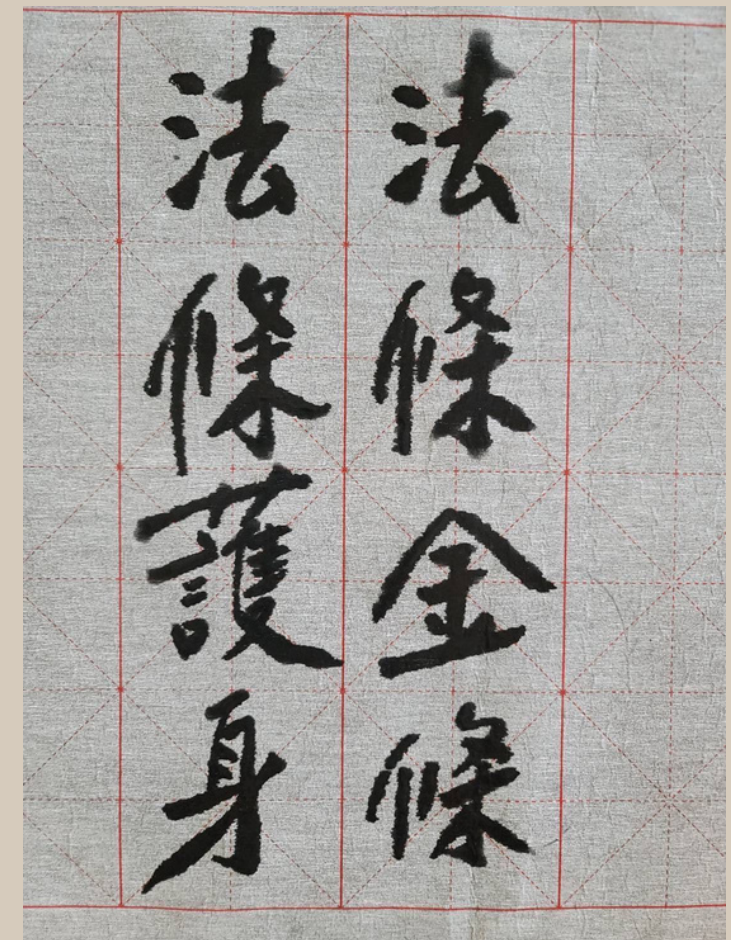 法條金條
法條護身